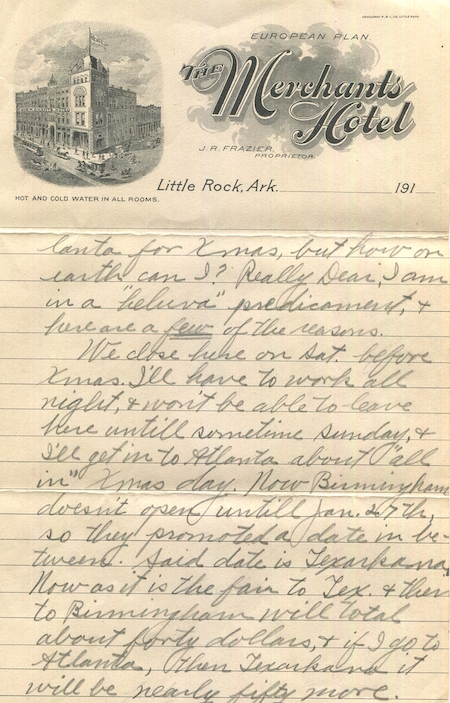 EUROPEAN PLAN
THE Merchants Hotel
J. R. FRAZIER,
PROPRIETOR.
Little Rock, Ark. 191
HOT AND COLD WATER IN ALL ROOMS.
lanta for Xmas, but how on
earth can I? Really Dear, I am
in a "heluva" predicament, &
here are a few of the reasons.
We close here on Sat. before
Xmas. I'll have to work all
night, & won't be able to leave
here untill sometime Sunday, &
I'll get in to Atlanta about "all
in" Xmas day. Now Birmingham
doesn't open untill Jan. 7th,
so they promoted a date in be-
tween. Said date is Texarkana.
Now as it is the fair to Tex. & then
to Birmingham will total
about forty dollars, & if I go to
Atlanta, then Texarkana it
will be nearly fifty more.